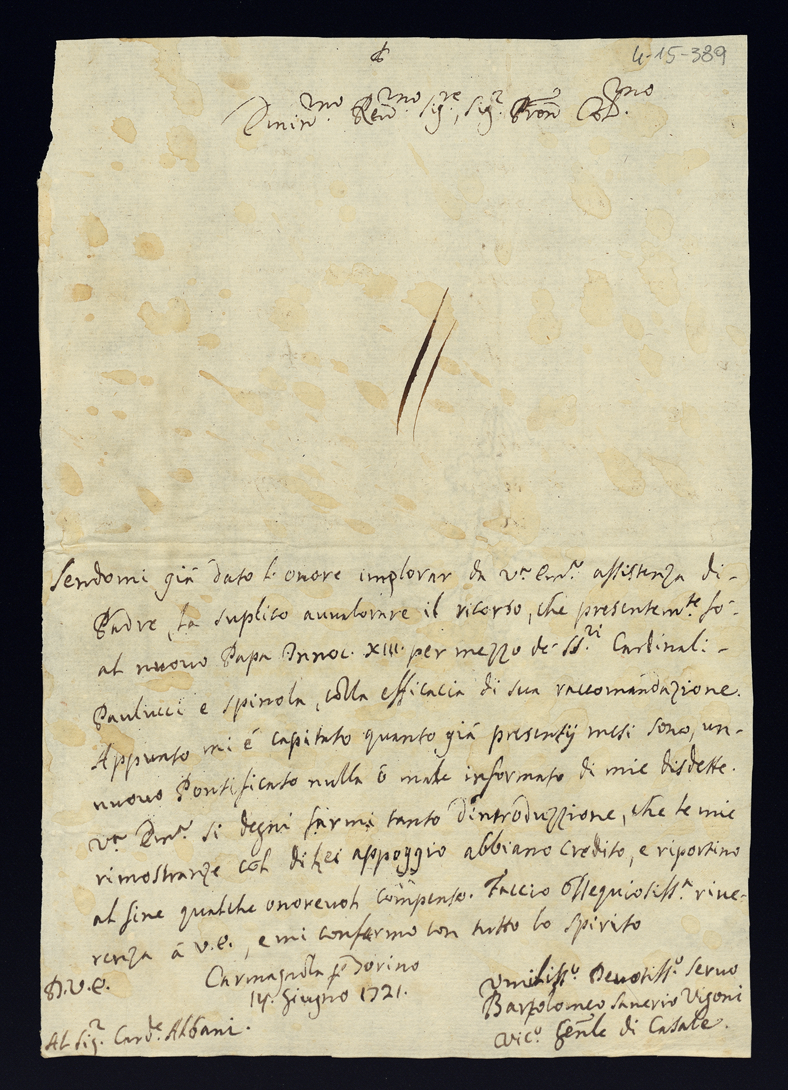 4-15-389
Emin.mo Reu.mo Sig.re, Sig.r Pron Col.mo
Sendomi già dato l'onore implorar da V.ra Em.a assistenza di-
Padre, la suplico avvalorare il ricorso, che presentem.te fò-
al nuovo Papa Innoc. XIII. per mezzo de' SS.ri Cardinali-
Paulucci e Spinola, colla efficacia di sua raccomandazione.
Appunto mi è capitato quanto già presentij mesi sono, un-
nuovo Pontificato nulla ò male informato di mie disdette.
V.ra Em.a si degni farmi tanto d'introduzzione, che le mie
rimostranze col di lei appoggio abbiano credito, e riportino
al fine qualche onorevole compenso. Faccio ossequiosiss.a rive-
renza à V.E., e mi confermo con tutto lo spirito
D.V.E.
Carmagnola p Torino
14. Giugno 1721.
Umiliss.o Devotiss.o Servo
Bartolomeo Vigoni
Vic.o Gen.le di Casale.
Al Sig.r Card.le Albani.